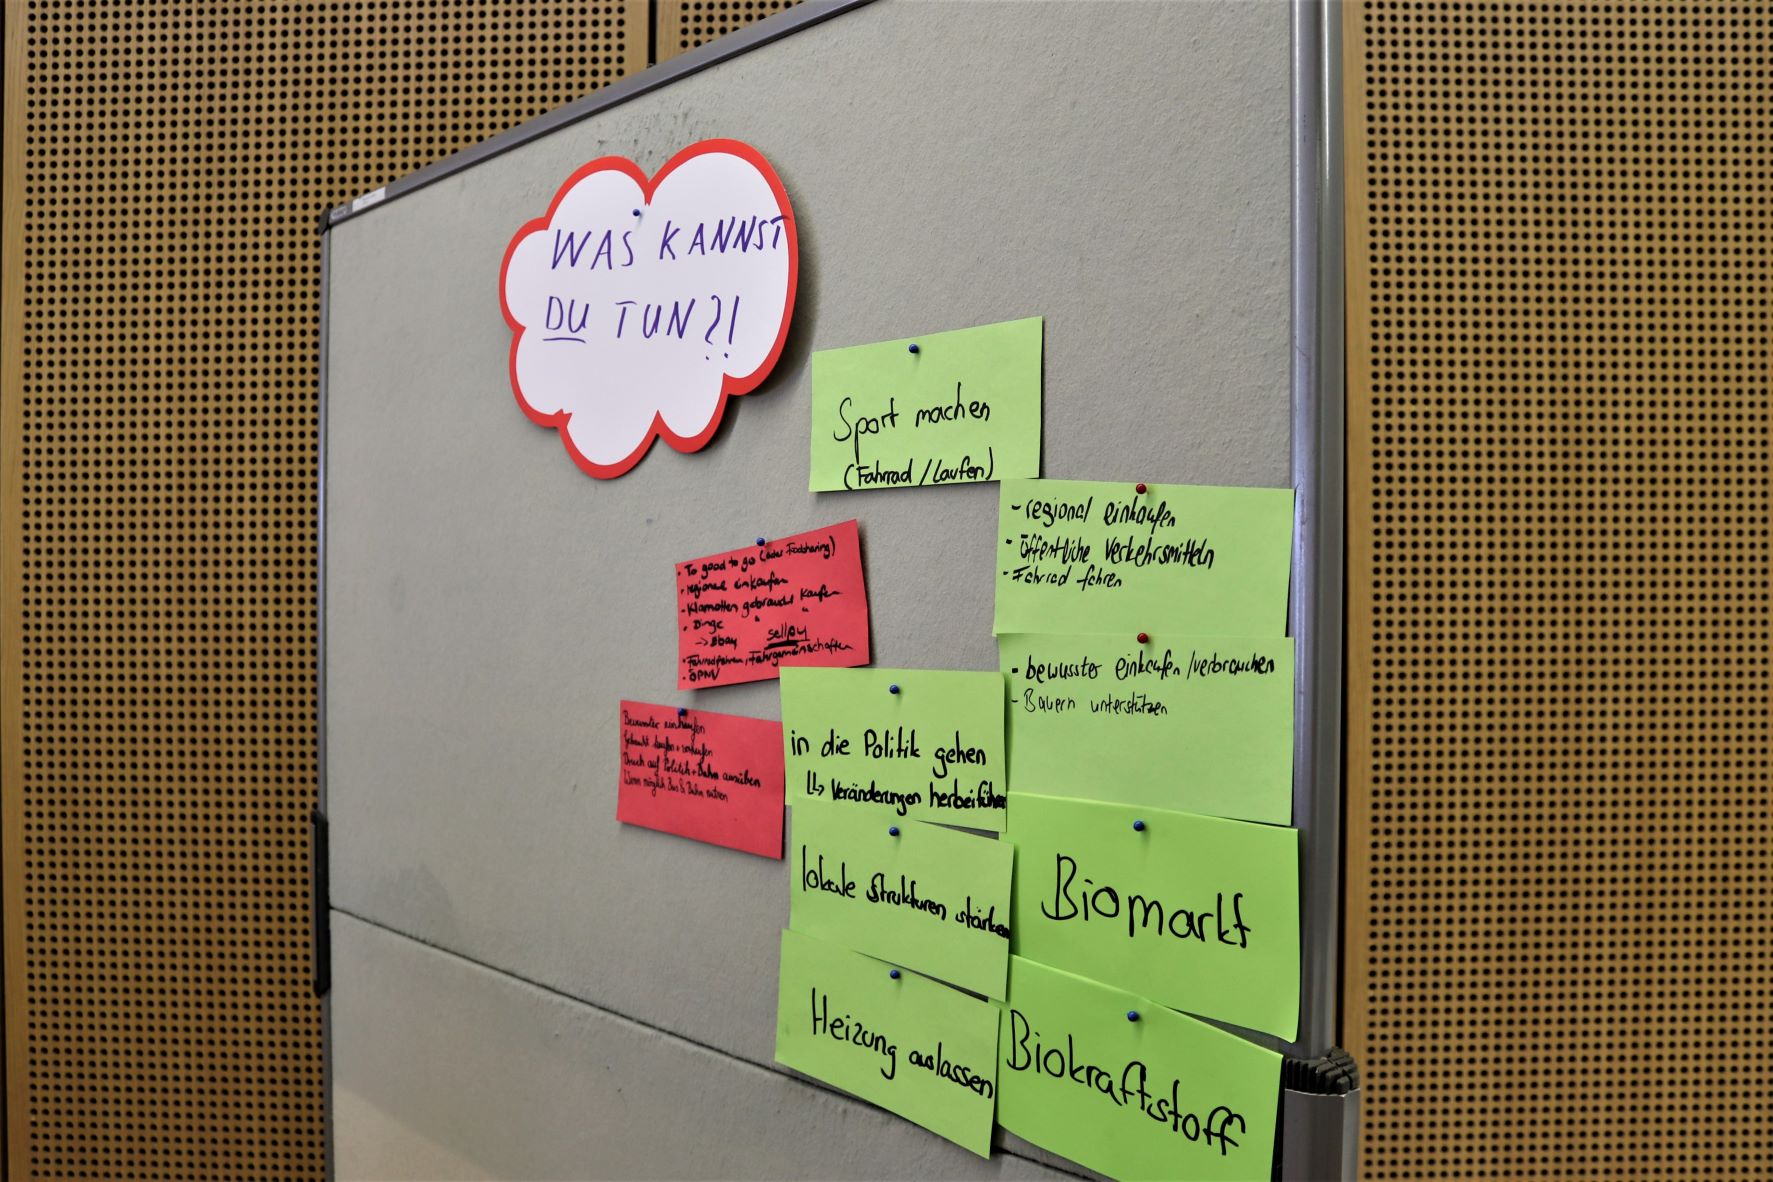 WAS KANNST
DU TUN?!
Sport machen
(Fahrrad / Laufen)
- regional einkaufen
- öffentliche Verkehrsmitteln
- Fahrrad fahren
• To good to go (oder Foodsharing)
• regional einkaufen
• Klamotten gebraucht kaufen
• Dinge " "
→ ebay sellpy
• Fahrradfahren, Fahrgemeinschaften
• ÖPNV
- bewusster einkaufen / verbrauchen
- Bauern unterstützen
Bewusster einkaufen
Gebraucht kaufen + verkaufen
Druck auf Politik + Bahn ausüben
Wenn möglich Bus & Bahn nutzen
in die Politik gehen
↳ Veränderungen herbeiführen
lokale Strukturen stärken
Biomarkt
Heizung auslassen
Biokraftstoff